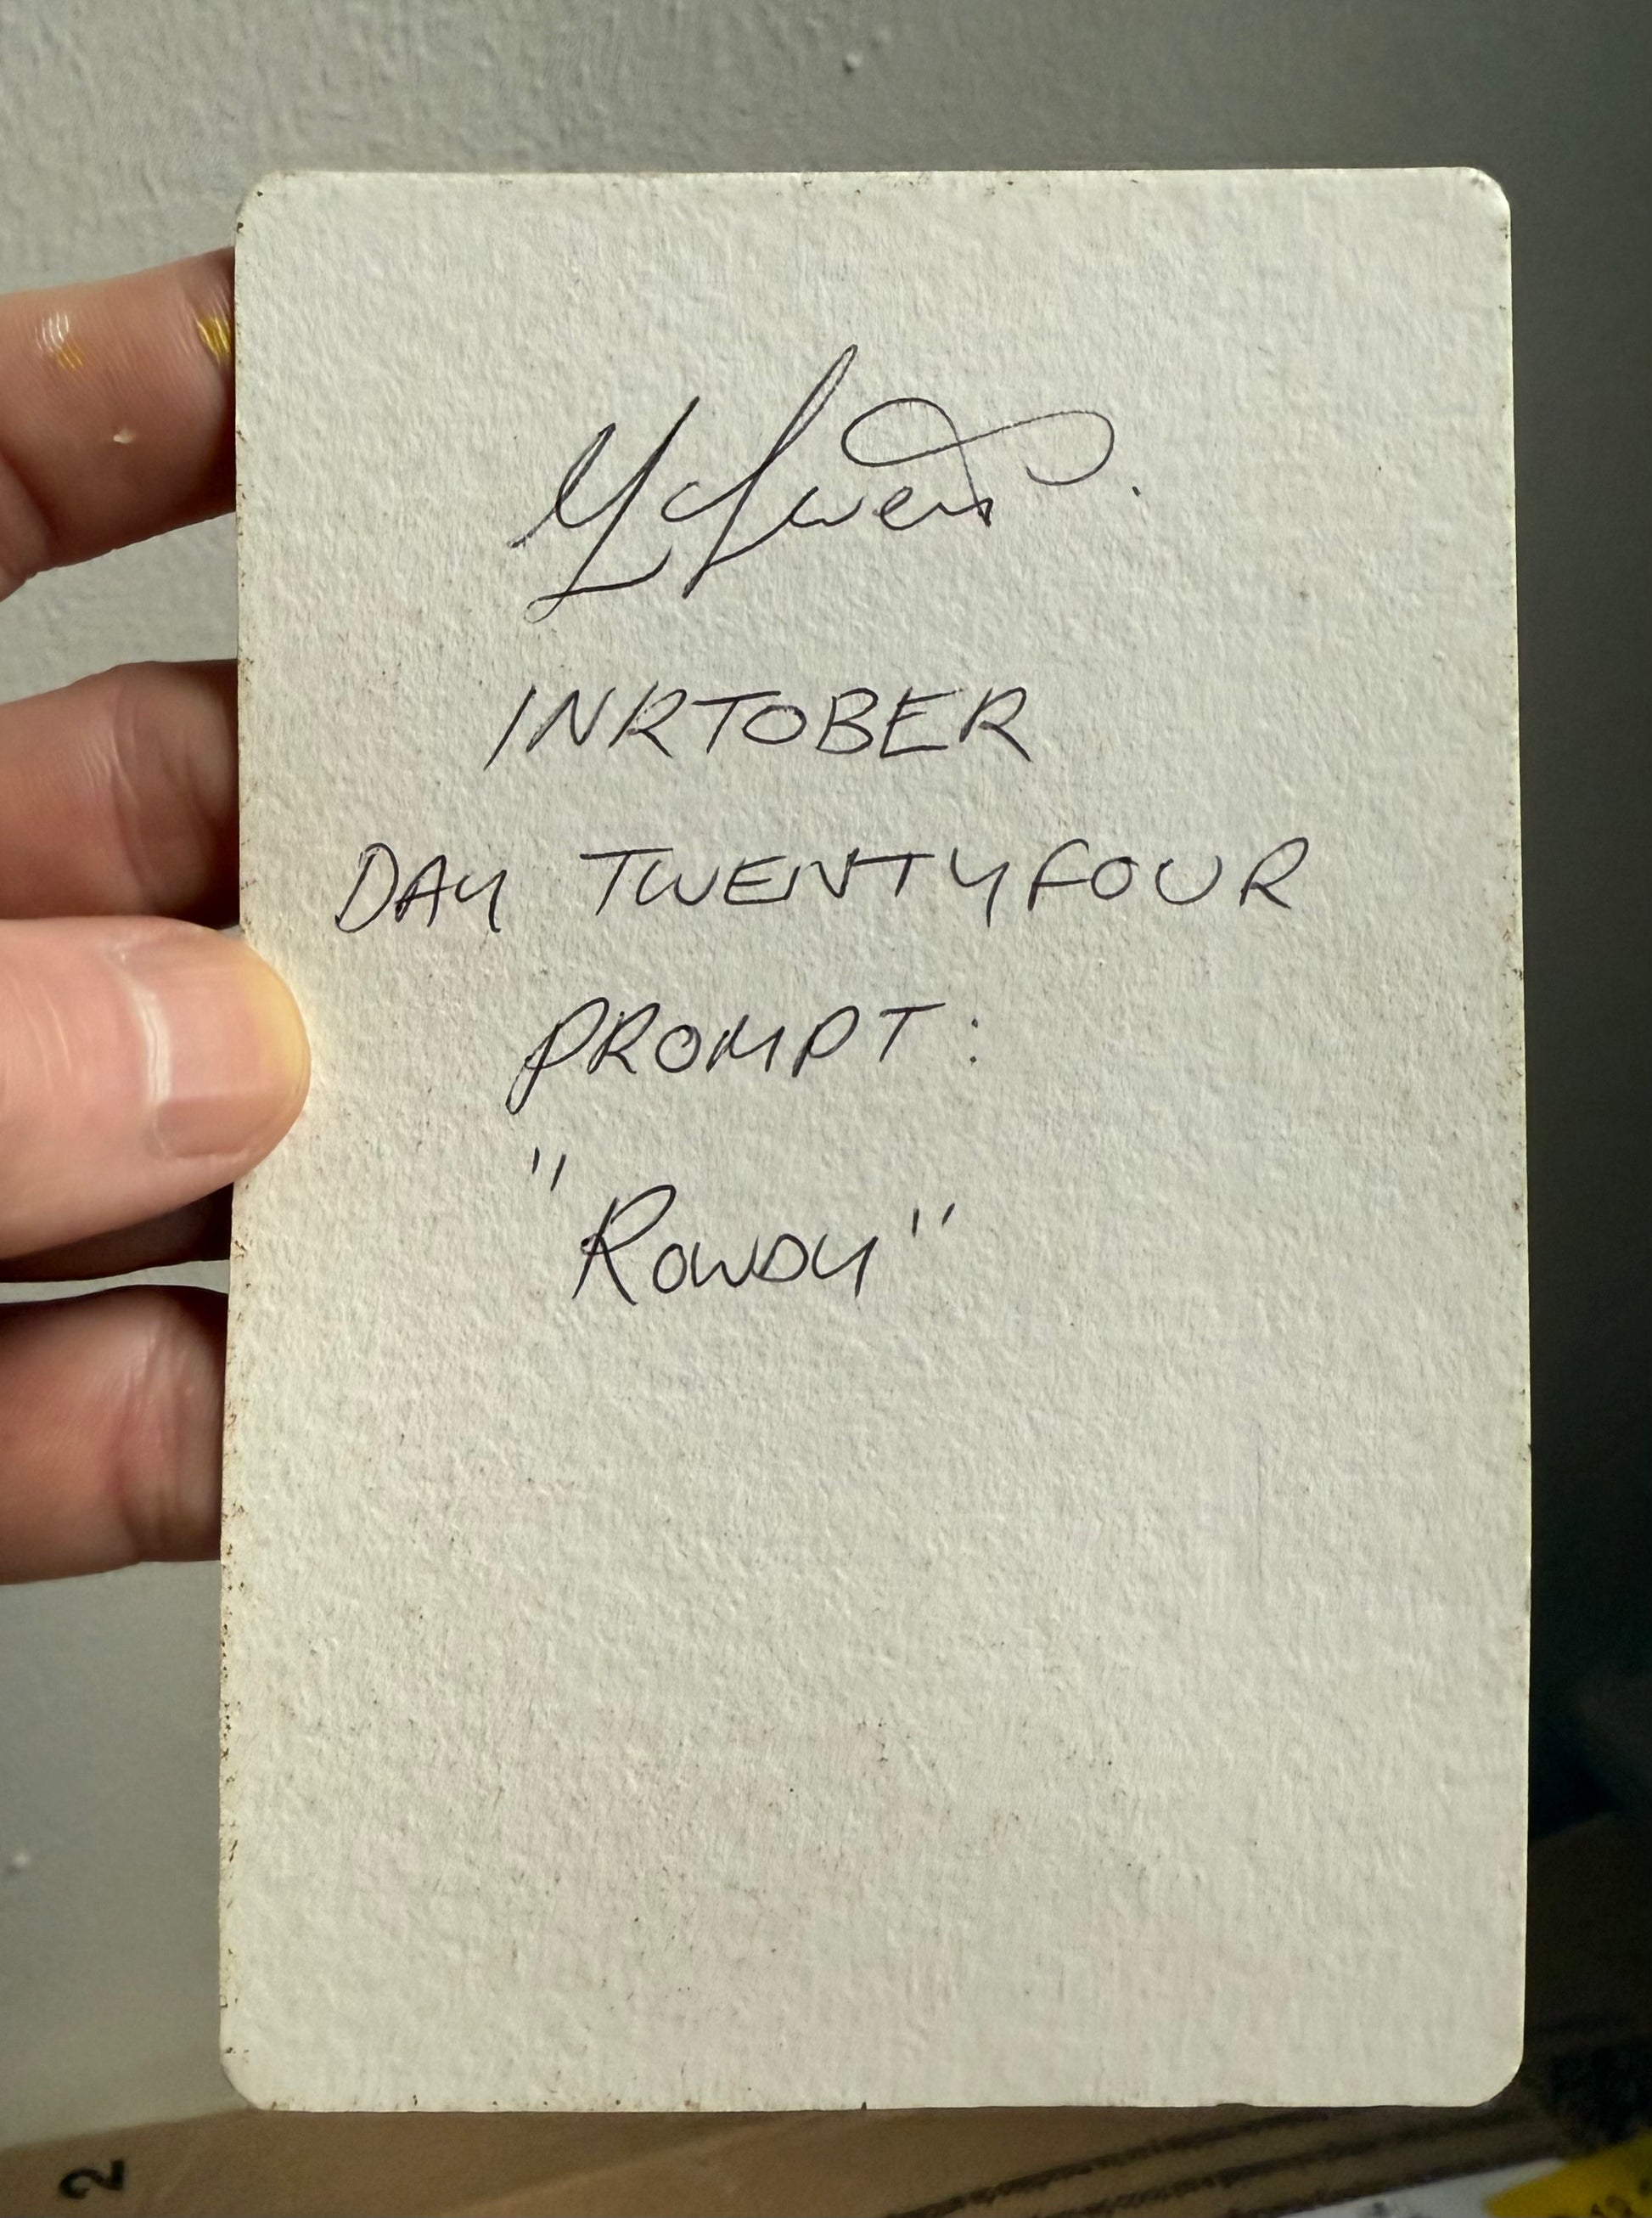 INKTOBER
DAY TWENTYFOUR
PROMPT:
"Rowdy"
2